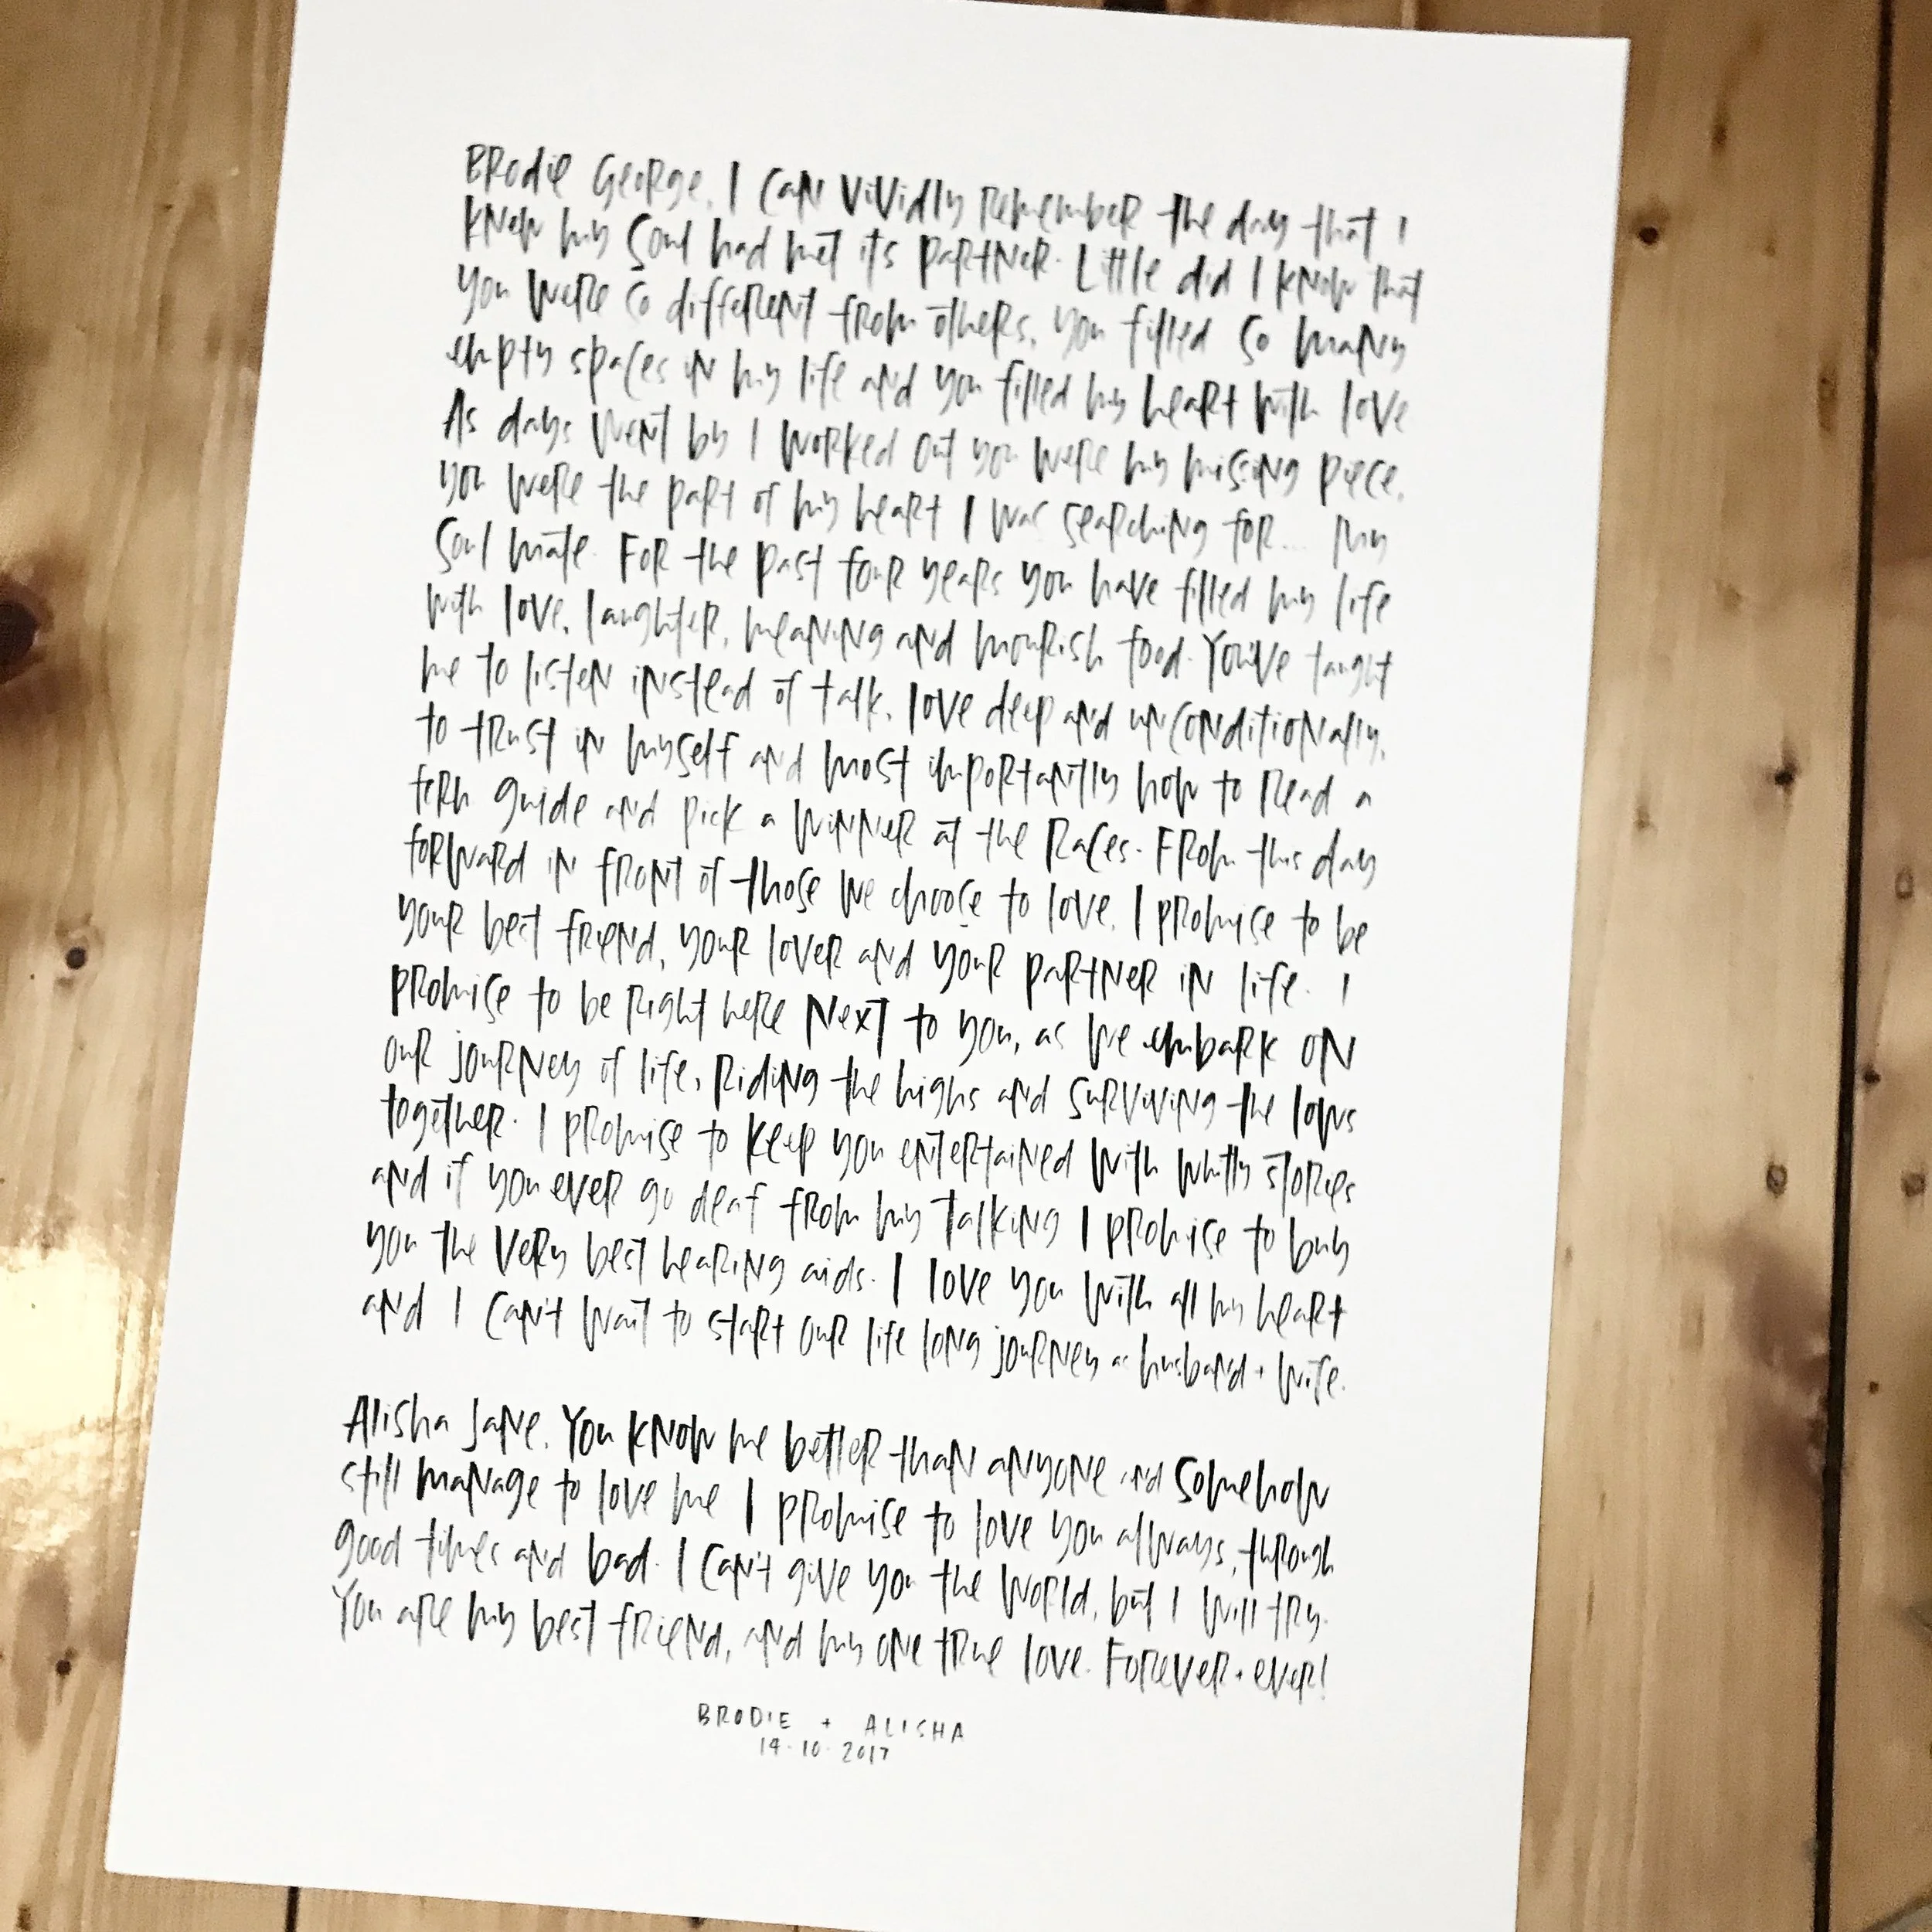 Brodie George, I can vividly remember the day that I
knew my soul had met its partner. Little did I know that
you were so different from others, you filled so many
empty spaces in my life and you filled my heart with love
As days went by I worked out you were my missing piece,
you were the part of my heart I was searching for... My
soul mate. For the past four years you have filled my life
with love, laughter, meaning and nourish food. You've taught
me to listen instead of talk, love deep and unconditionally,
to trust in myself and most importantly how to read a
form guide and pick a winner at the races. From this day
forward in front of those we choose to love, I promise to be
your best friend, your lover and your partner in life. I
promise to be right here next to you, as we embark on
our journey of life, riding the highs and surviving the lows
together. I promise to keep you entertained with whitty stories
and if you ever go deaf from my talking I promise to buy
you the very best hearing aids. I love you with all my heart
and I can't wait to start our life long journey as husband + wife.
Alisha Jane, You know me better than anyone and somehow
still manage to love me I promise to love you always, through
good times and bad. I can't give you the world, but I will try.
You are my best friend, and my one true love. Forever + ever!
BRODIE + ALISHA
14.10.2017